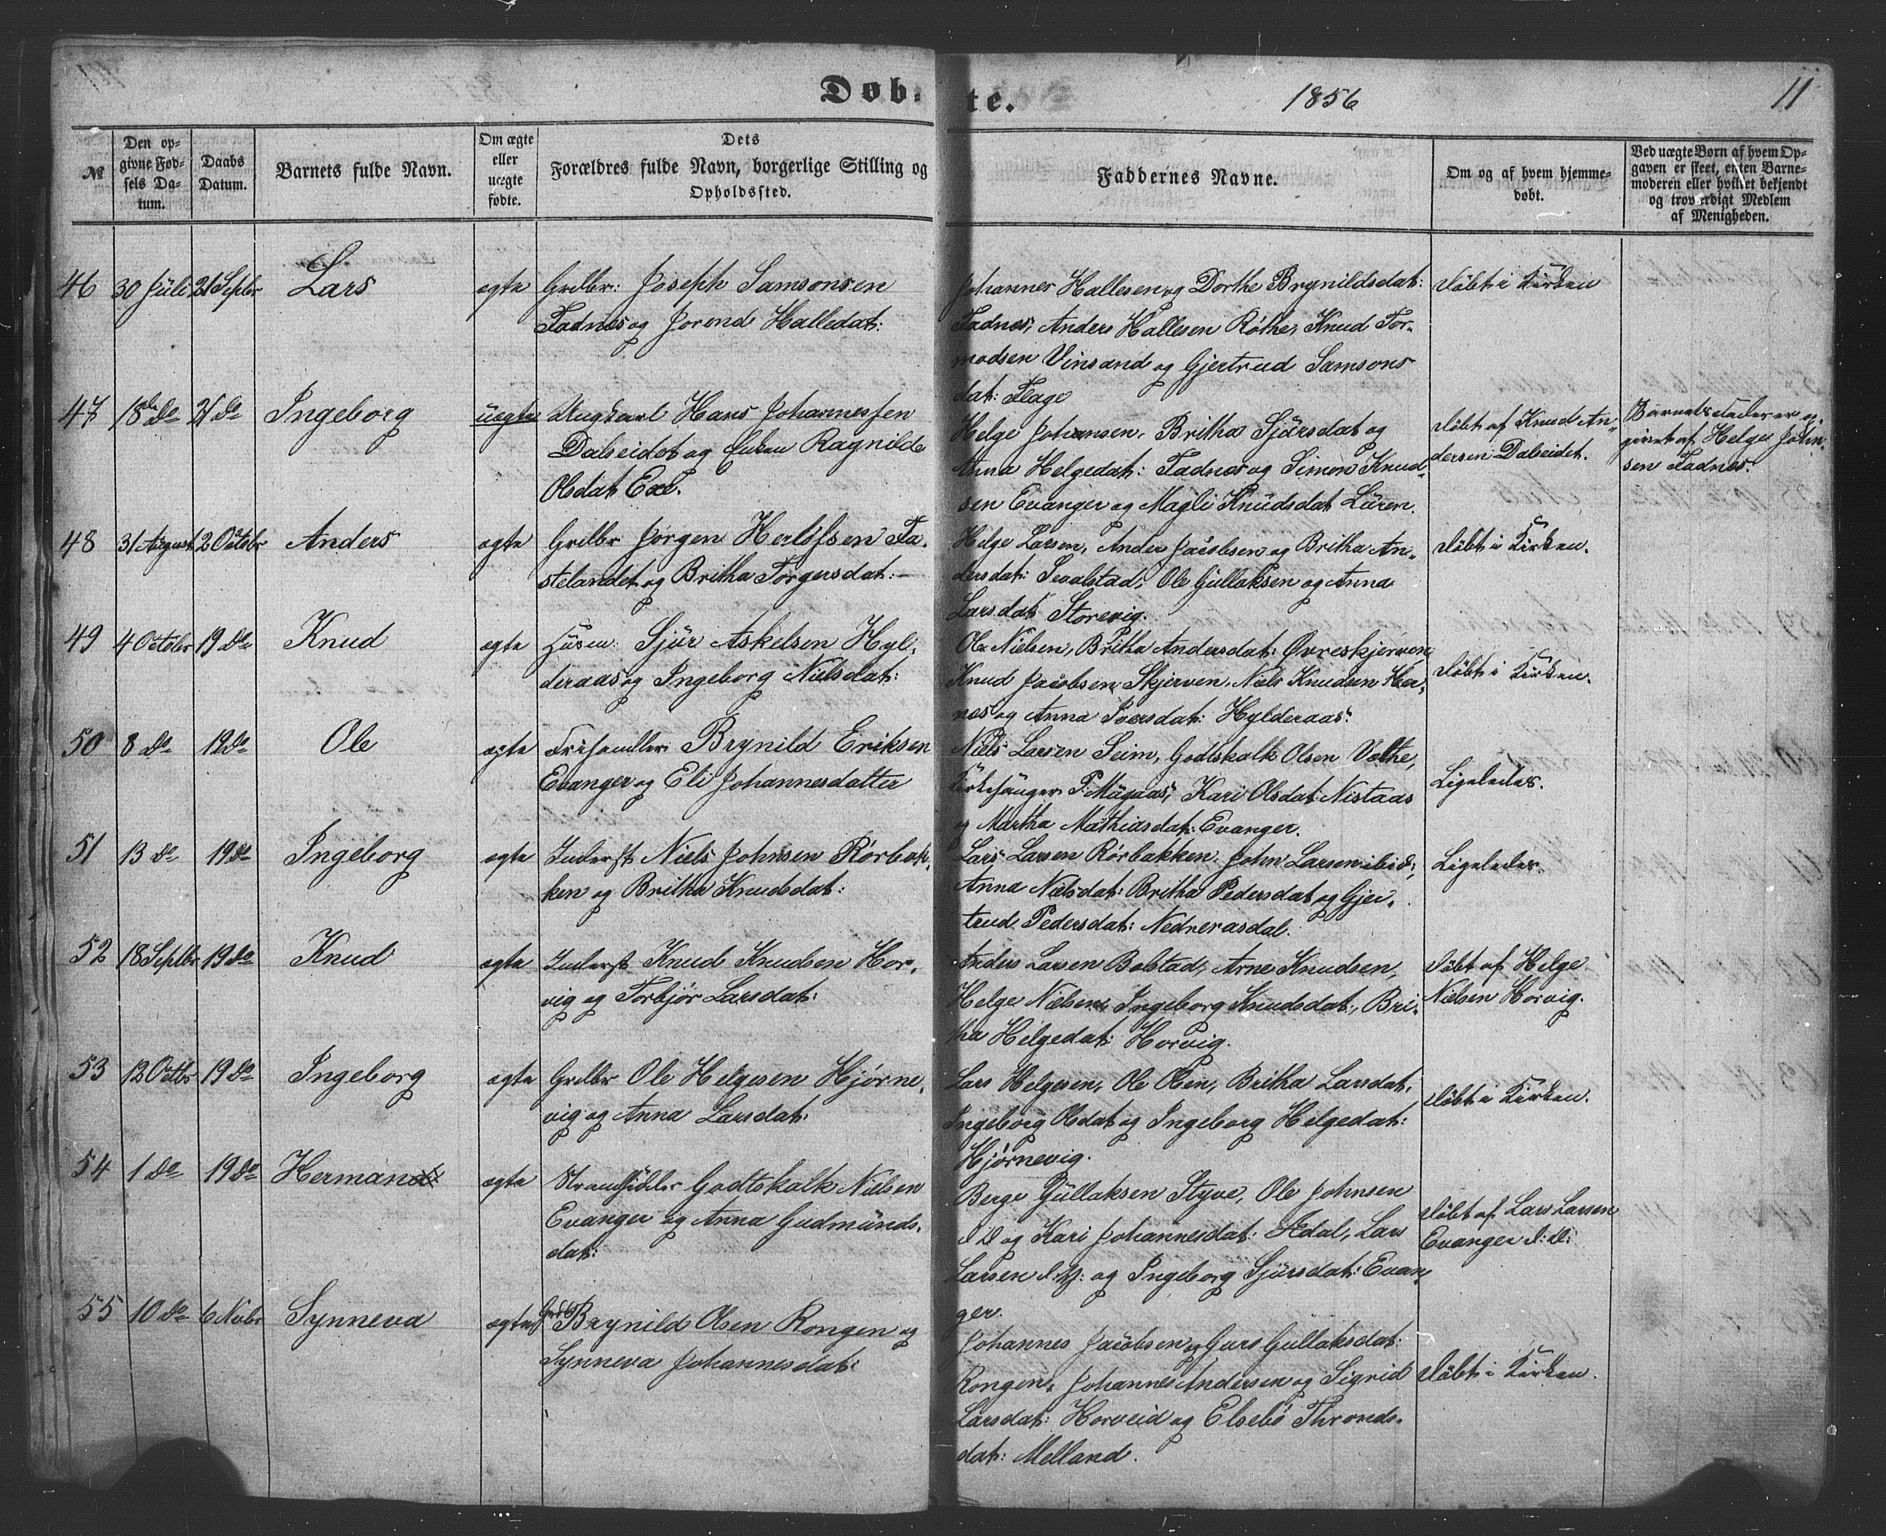 Døbte. 1856 11
№
Den opgivne Fødsels Datum.
Daabs Datum.
Barnets fulde Navn.
Om ægte eller uægte fødte.
Dets Forældres fulde Navn, borgerlige Stilling og Opholdsted.
Faddernes Navne.
Om og af hvem hjemmedøbt.
Ved uægte Børn af hvem Opgaven er skeet, enten Barnemoderen eller hvilket bekjendt og troværdigt Medlem af Menigheden.
46 30 Juli 21 Septbr Lars ægte Grdbr: Joseph Samsonsen
Fadnes og Jorend Halledat:
Johannes Hallesen og Dorthe Brynildsdat:
Fadnes, Anders Hallesen Røthe, Knud Tor-
modsen Vinsand og Gjertrud Samsons
dat: Flage
Døbt i Kirken
47 18 do 21 do Ingeborg uægte Ungkarl Hans Johannessen
Dalseidet og Enken Ragnilde
Olsdat Exe.
Helge Johansen, Britha Sjursdat og
Anna Helgedat: Fadnes og Simon Knud-
sen Evanger og Magli Knudsdat Lüren.
Døbt af Knud An-
dersen Dalseidet.
Barnets Fader er op-
givet af Helge John-
sen Fadnes.
48 31 August 2 Octobr Anders ægte Grdbr Jørgen Herlofsen Fa-
stelandet og Britha Torgersdat:
Helge Larsen, Anders Jacobsen og Britha An-
dersdat: Sevalstad, Ole Gullaksen og Anna
Larsdat Storevig.
Døbt i Kirken.
49 4 Octobr 19 do Knud ægte Husm: Sjur Askelsen Hyl-
deraas og Ingeborg Nielsdat:
Ole Nielsen, Britha Andersdat: Øvreskjerven,
Knud Jacobsen Skjerven, Niels Knudsen Her-
nes og Anna Iversdat: Hylderaas.
Døbt i Kirken.
50 8 do 19 do Ole ægte Frihandler Brynild Eriksen
Evanger og Eli Johannesdatter
Niels Larsen Seim, Godtskalk Olsen Vethe,
Kirkesanger P. Mugaas, Kari Olsdat: Nistaas
og Martha Mathiasdat: Evanger.
Ligeledes.
51 13 do 19 do Ingeborg ægte Inderst Niels Johnsen Rørbak-
ken og Britha Knudsdat:
Lars Larsen Rørbakken, John Larsen ibid:,
Anna Nielsdat: Britha Pedersdat og Gjer-
trud Pedersdat: Nedreraasdal.
Ligeledes.
52 18 Septbr 19 do Knud ægte Inderst Knud Knudsen Hor-
vig og Torbjør Larsdat:
Anders Larsen Bolstad, Arne Knudsen,
Helge Nielsen, Ingeborg Knudsdat:, Bri-
tha Helgedat: Horvig.
Døbt af Helge
Nielsen Horvig.
53 12 Octbr 19 do Ingeborg ægte Grdbr Ole Helgesen Hjørne-
vig og Anna Larsdat:
Lars Helgesen, Ole Olsen, Britha Larsdat:
Ingeborg Olsdat og Ingeborg Helgedat:
Hjørnevig.
Døbt i Kirken.
54 1 do 19 do Herman ægte Strandsidder Godtskalk Nielsen
Evanger og Anna Gudmunds-
dat:
Berge Gullaksen Styve, Ole Johnsen
og Kari Johannesdat: Ædal, Lars
Larsen og Ingeborg Sjursdat: Evan-
ger.
Døbt af Lars Larsen
Evanger
55 10 do 6 Novbr Synneva ægte Grdbr Brynild Olsen Rongen og
Synneva Johannesdat:
Johannes Jacobsen og Guro Gullaksdat:
Rongen, Johannes Andersen og Sigrid
Larsdat: Horveid og Elsebe Thronds-
dat: Melland.
Døbt i Kirken.